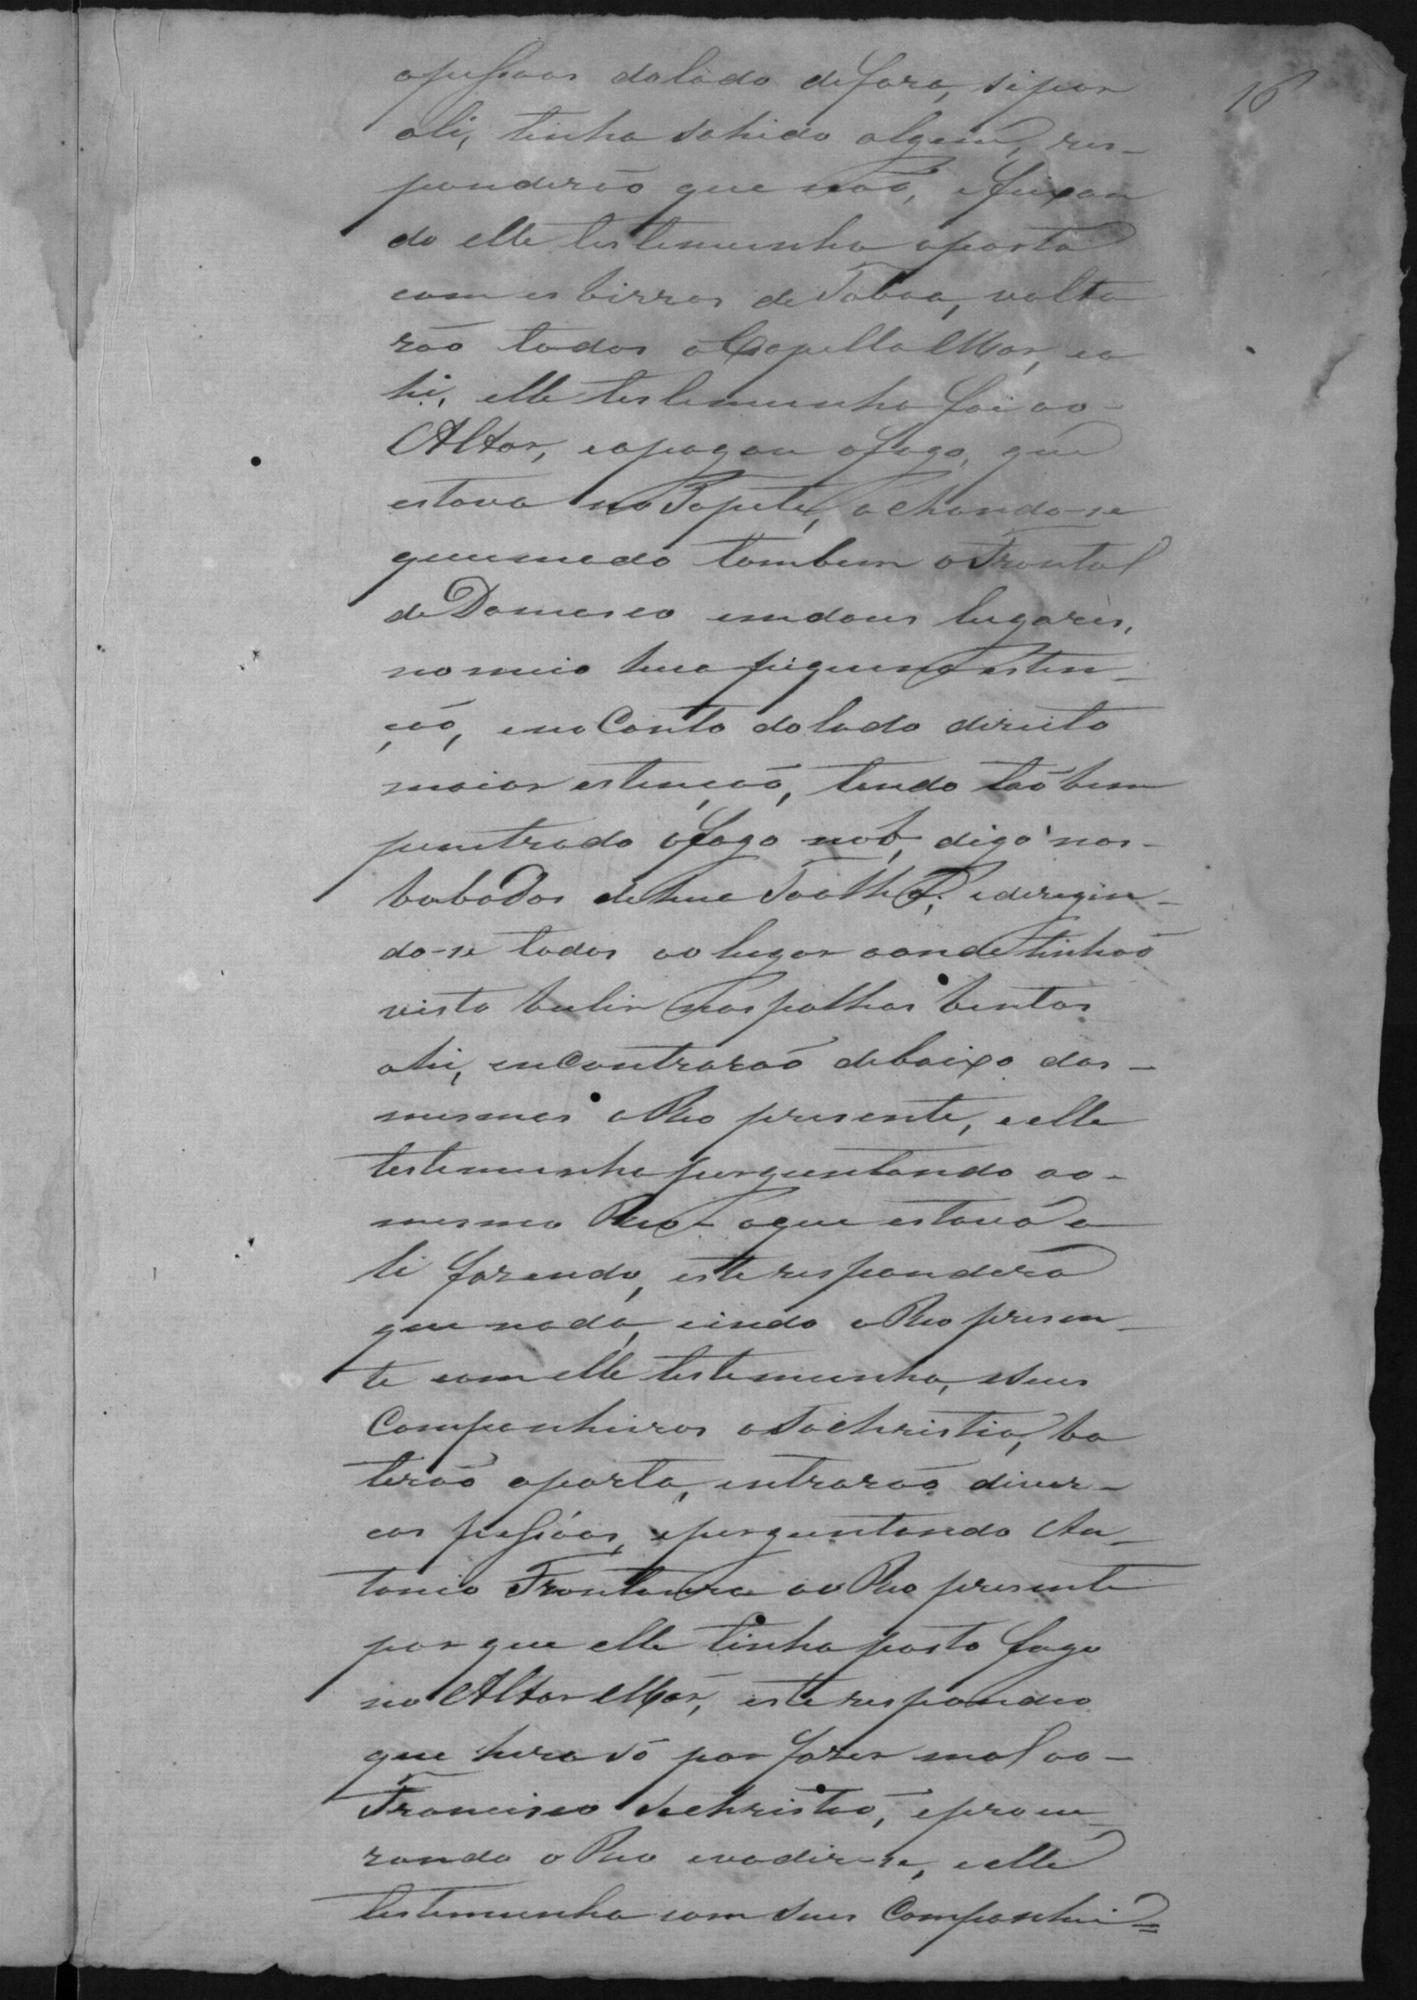 16
apessoas dolado defora, sipor
ali, tinha sahido algem, res-
ponderão que não, efeixan
do elle testemunha aporta
com os birros de Taboa, volta
rão todos a Capella Mor, ea
hi, elle testemunha foi ao-
Altar, eapagou ofogo, que
estava no Tapete, achando-se
queimado tambem o Frontal
de Damasco emdous lugares,
nomeio hua piquena esten-
ção, eno Canto dolado direito
maior estenção, tendo taõbem
penetrado ofogo nob, digo nos-
babados de hua Toalha; ederegin-
do-se todos ao lugar aonde tinhaõ
visto bulir nas palhas bentas
ahi, enContraraõ debaixo das-
mesmas o Reo presente, eelle
testemunha perguntando ao-
mesmo Reo- oque estava a
li fazendo, este respondera
que nada, eindo o Reo presen-
te com elle testemunha, eseus
Companheiros a Sachristia, ba
teraõ aporta, entraraõ diver-
cas pessôas, eperguntando An-
tonio Frontoura ao Reo presente
por que elle tinha posto fogo
no Altar Mór, este respondeo
que hera só por fazer mal ao-
Francisco Sachristaõ, eprocu-
rando o Reo evadir-se, eelle
testemunha com seus Companhei=